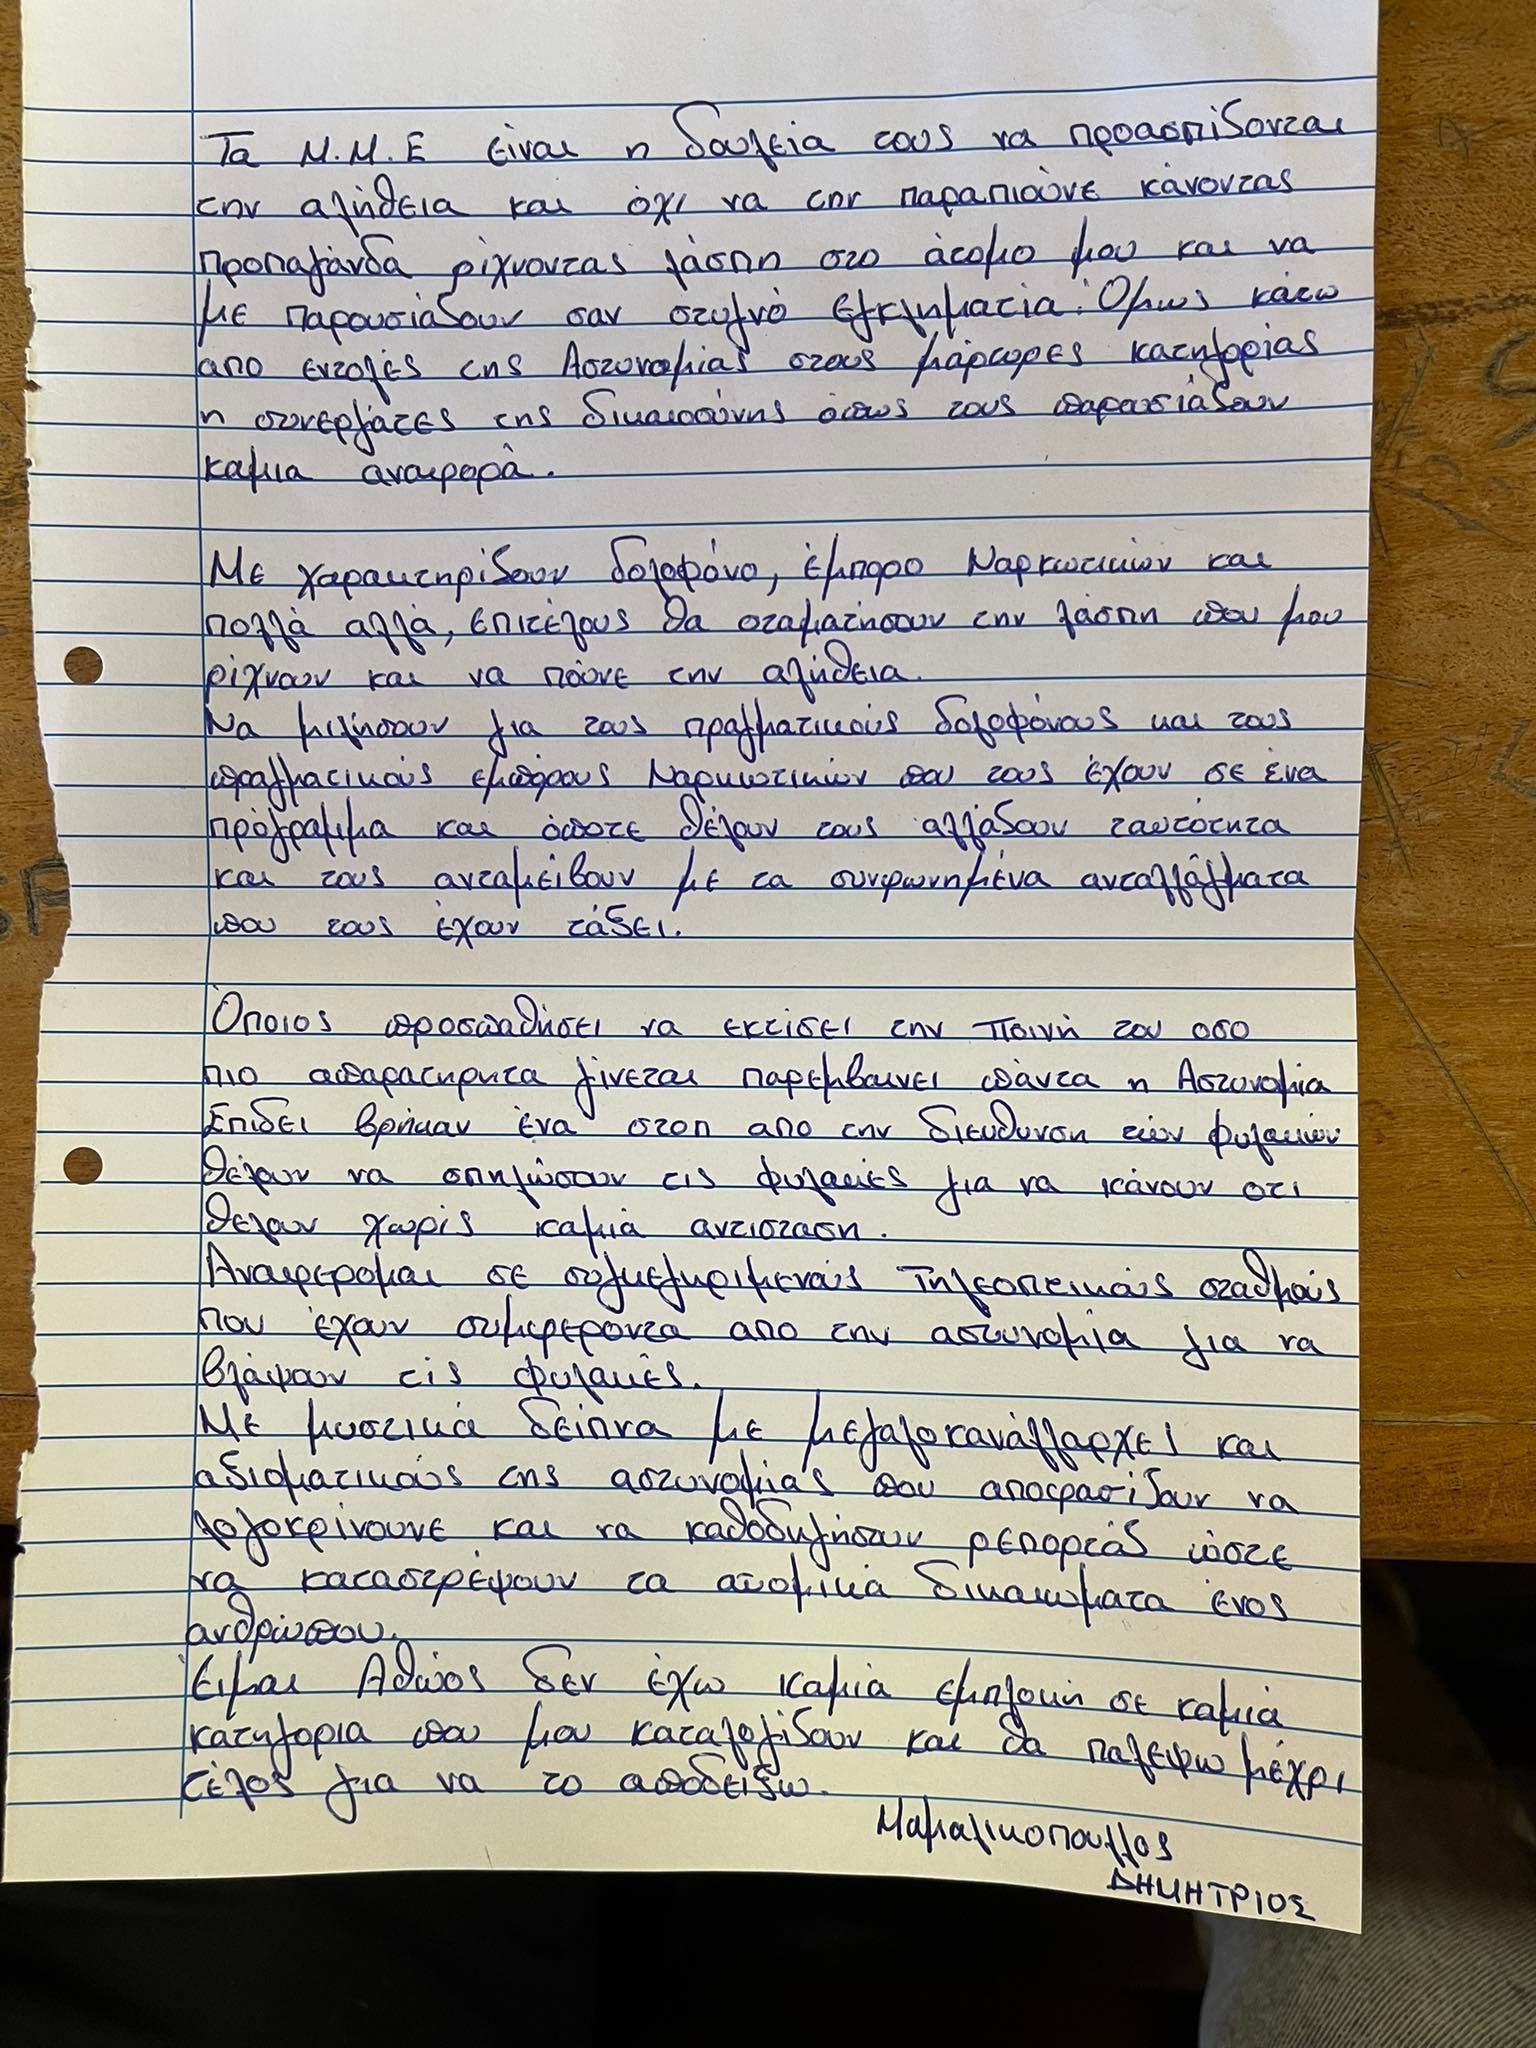 Τα Μ.Μ.Ε είναι η δουλεία τους να προασπίζονται
την αλήθεια και όχι να την παραπιούνε κάνοντας
προπαγάνδα ρίχνοντας λάσπη στο άτομο μου και να
με παρουσιάζουν σαν στυγνό εγκληματία. Όμως κάτω
απο εντολές της Αστυνομίας στους μάρτυρες κατηγορίας
η συνεργάτες της δικαιοσύνης όπως τους παρουσιάζουν
καμια αναφορά.
Με χαρακτηρίζουν δολοφόνο, έμπορο Ναρκωτικών και
πολλά αλλά, επιτέλους θα σταματήσουν την λάσπη που μου
ρίχνουν και να πούνε την αλήθεια.
Να μιλήσουν για τους πραγματικούς δολοφόνους και τους
πραγματικούς εμπόρους Ναρκωτικών που τους έχουν σε ένα
πρόγραμμα και όποτε θέλουν τους αλλάζουν ταυτότητα
και τους ανταμείβουν με τα συμφωνημένα ανταλλάγματα
που τους έχουν τάξει.
Όποιος προσπαθήσει να εκτίσει την ποινή του οσο
πιο απαρατηρητα γίνεται παρεμβαινει πάντα η Αστυνομία
Επιδει βρήκαν ένα στοπ απο την διευθυνση των φυλακών
θέλουν να σπηλώσουν τις φυλακές για να κάνουν οτι
θελουν χωρίς καμιά αντισταση.
Αναφερομαι σε συγκεγκριμενούς Τηλεοπτικούς σταθμούς
που έχουν συμφεροντα απο την αστυνομία για να
βλάψουν τις φυλακές.
Με μυστικά δείπνα με μεγαλοκανάλλαρχει και
αξιοματικούς της αστυνομίας που αποφασίζουν να
λογοκρίνουνε και να καθοδηγήσουν ρεπορτάζ ώστε
να καταστρέψουν τα ατομικά δικαιωματα ένος
ανθρώπου.
Ειμαι Αθώος δεν έχω καμιά εμπλοκή σε καμιά
κατηγορια που μου καταλογίζουν και θα παλεψω μέχρι
τέλος για να το αποδειξω.
Μαμαλικοπουλλος
ΔΗΜΗΤΡΙΟΣ